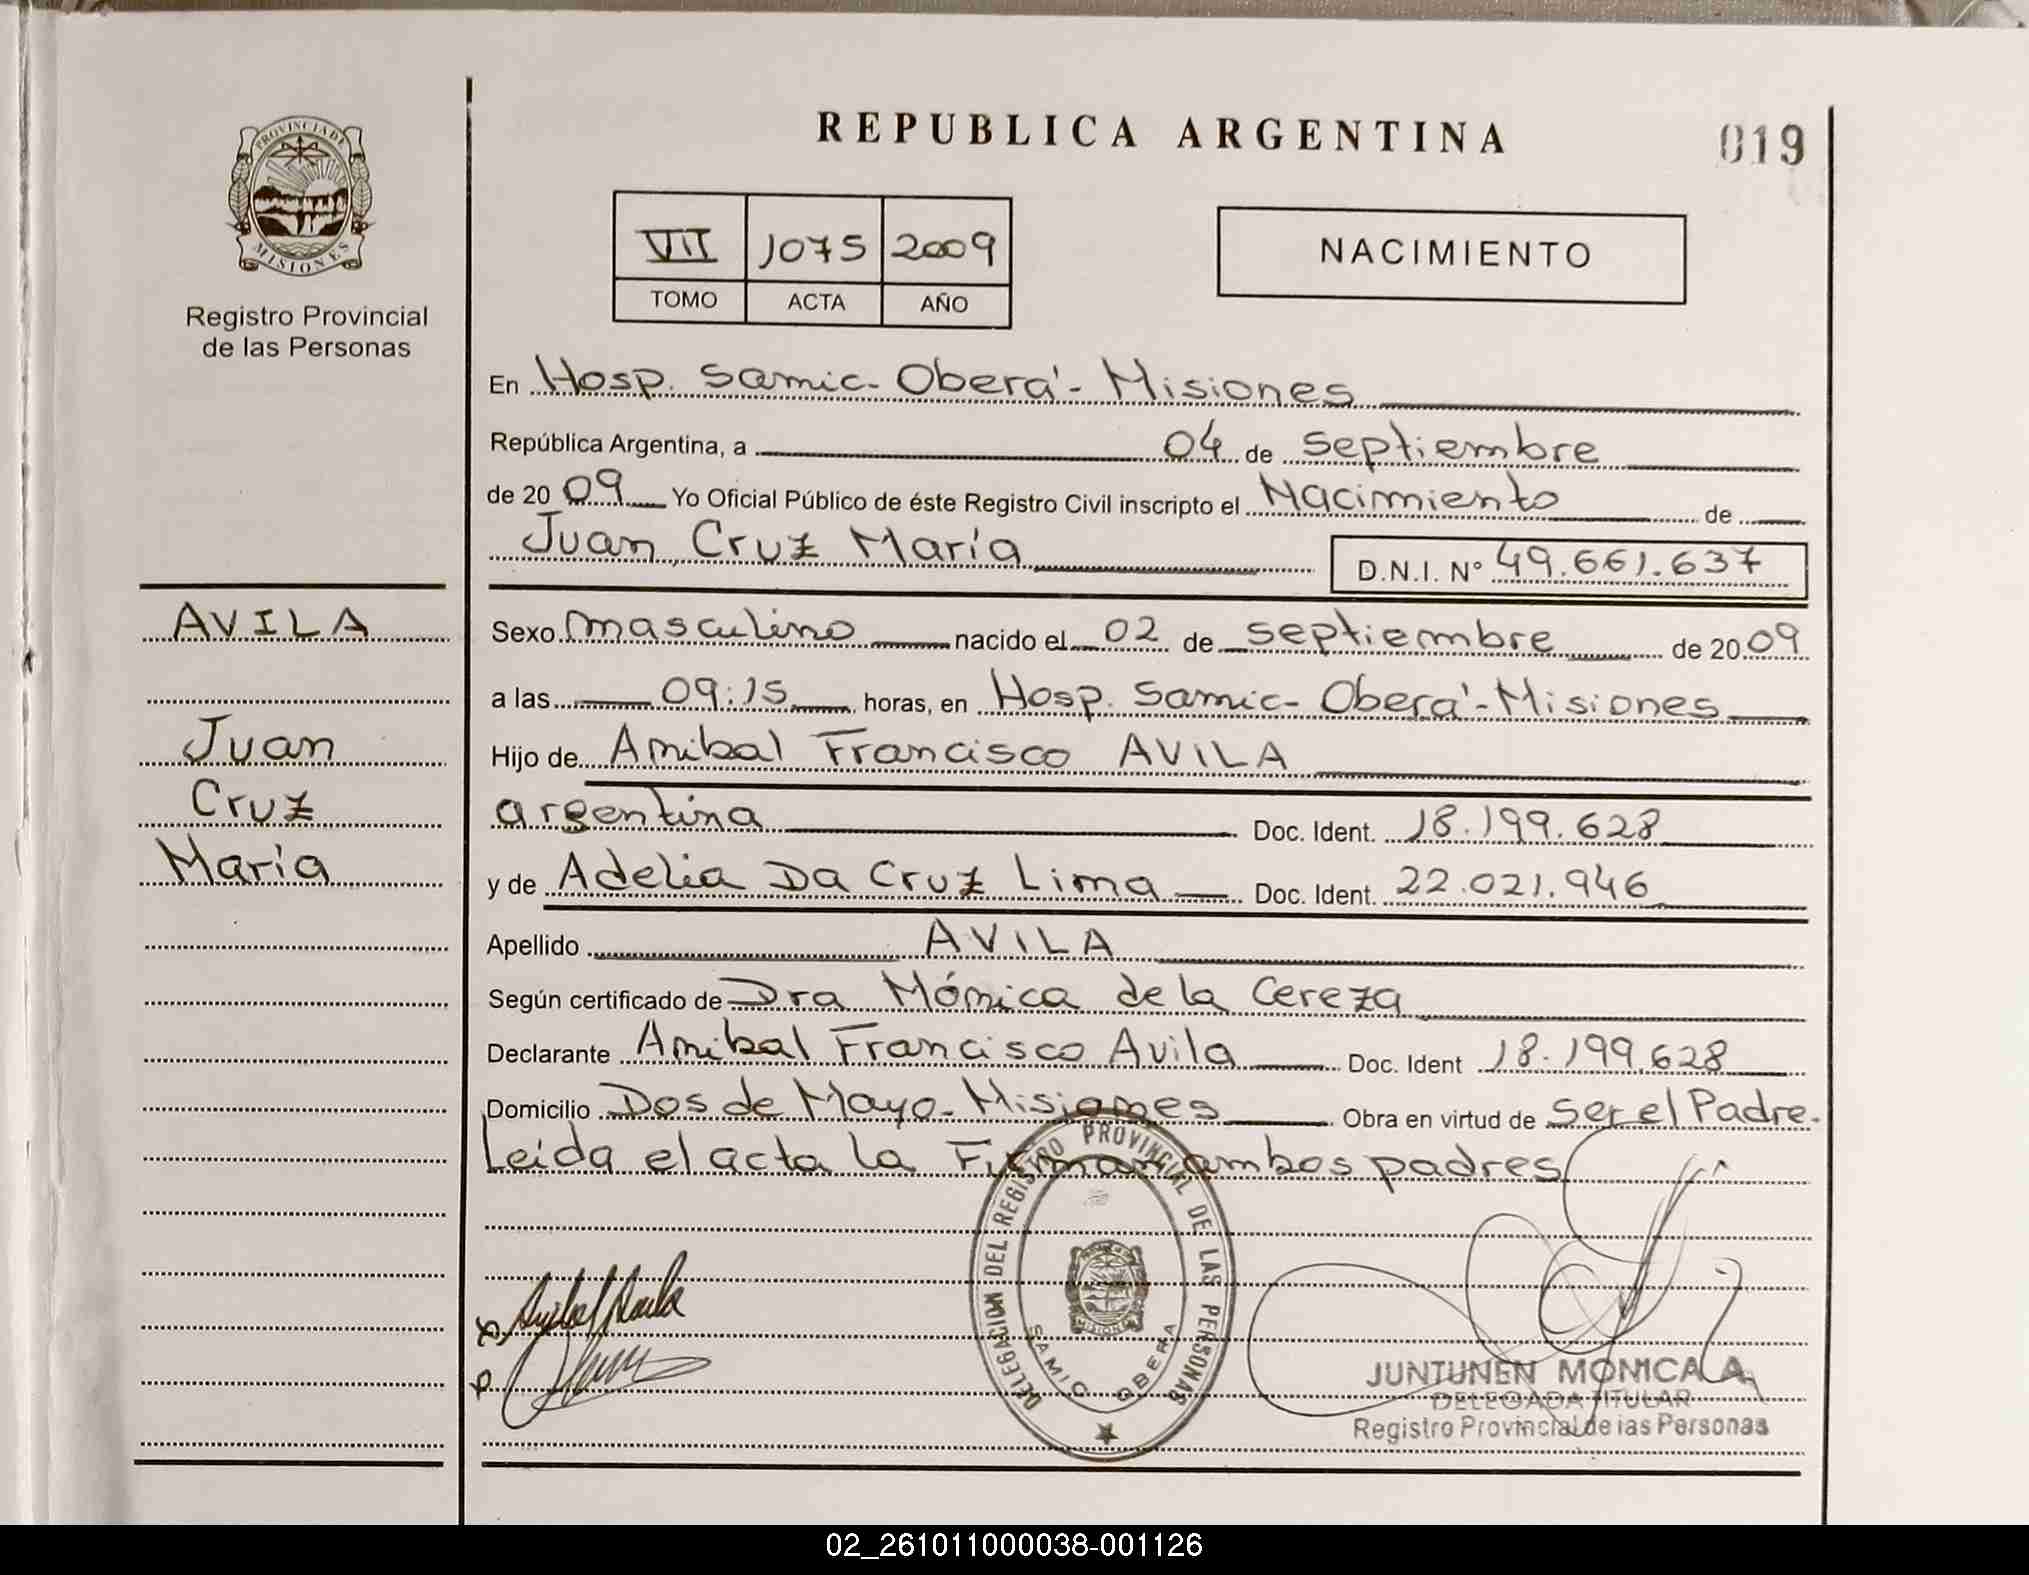 REPUBLICA ARGENTINA
019
PROVINCIA DE
MISIONES
Registro Provincial
de las Personas
VII 1075 2009
TOMO ACTA AÑO
NACIMIENTO
En Hosp. Samic - Oberá - Misiones
República Argentina, a 04 de Septiembre
de 2009 Yo Oficial Público de éste Registro Civil inscripto el Nacimiento de
Juan Cruz María
D.N.I. N° 49.661.637
AVILA
Juan
Cruz
María
Sexo masculino nacido el 02 de septiembre de 2009
a las 09:15 horas, en Hosp. Samic - Oberá - Misiones
Hijo de Anibal Francisco AVILA
argentina Doc. Ident. 18.199.628
y de Adelia Da Cruz Lima Doc. Ident. 22.021.946
Apellido AVILA
Según certificado de Dra Mónica de la Cereza
Declarante Anibal Francisco Avila Doc. Ident 18.199.628
Domicilio Dos de Mayo - Misiones Obra en virtud de Ser el Padre.
Leida el acta la Firman ambos padres
DELEGACION DEL REGISTRO PROVINCIAL DE LAS PERSONAS
MISIONES
SAMIC OBERA
Anibal Avila
JUNTUNEN MONICA A.
DELEGADA TITULAR
Registro Provincial de las Personas
02_261011000038-001126